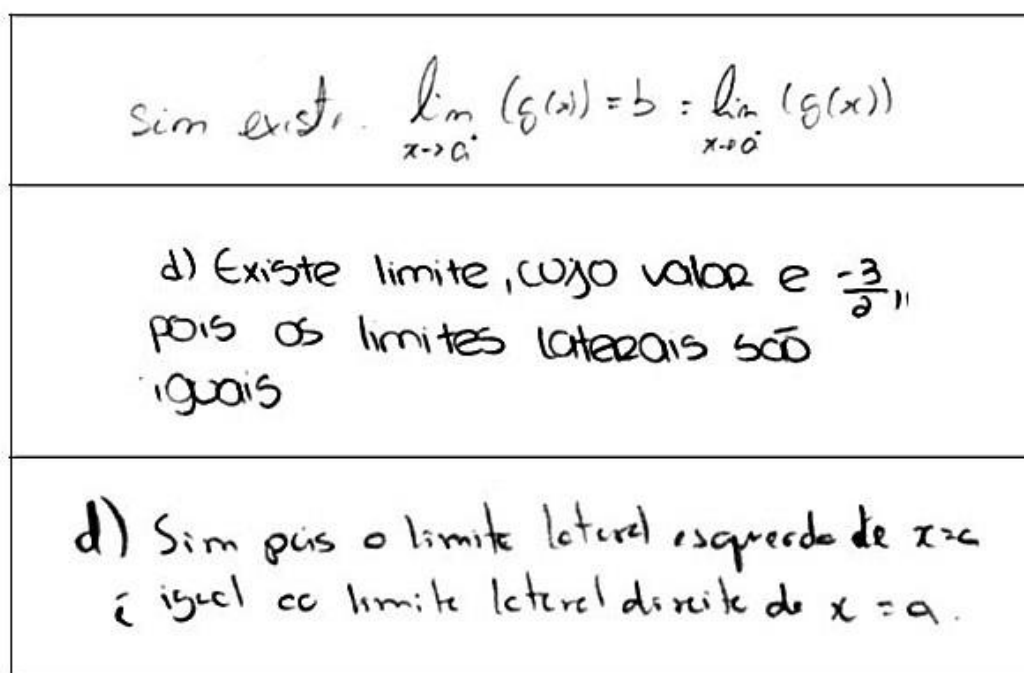 sim existe. lim (g(x)) = b = lim (g(x))
x→a⁺ x→a⁻
d) Existe limite, cujo valor e -3/2,,
pois os limites laterais são
iguais
d) Sim pois o limite lateral esquerdo de x=a
é igual ao limite lateral direito de x = a.